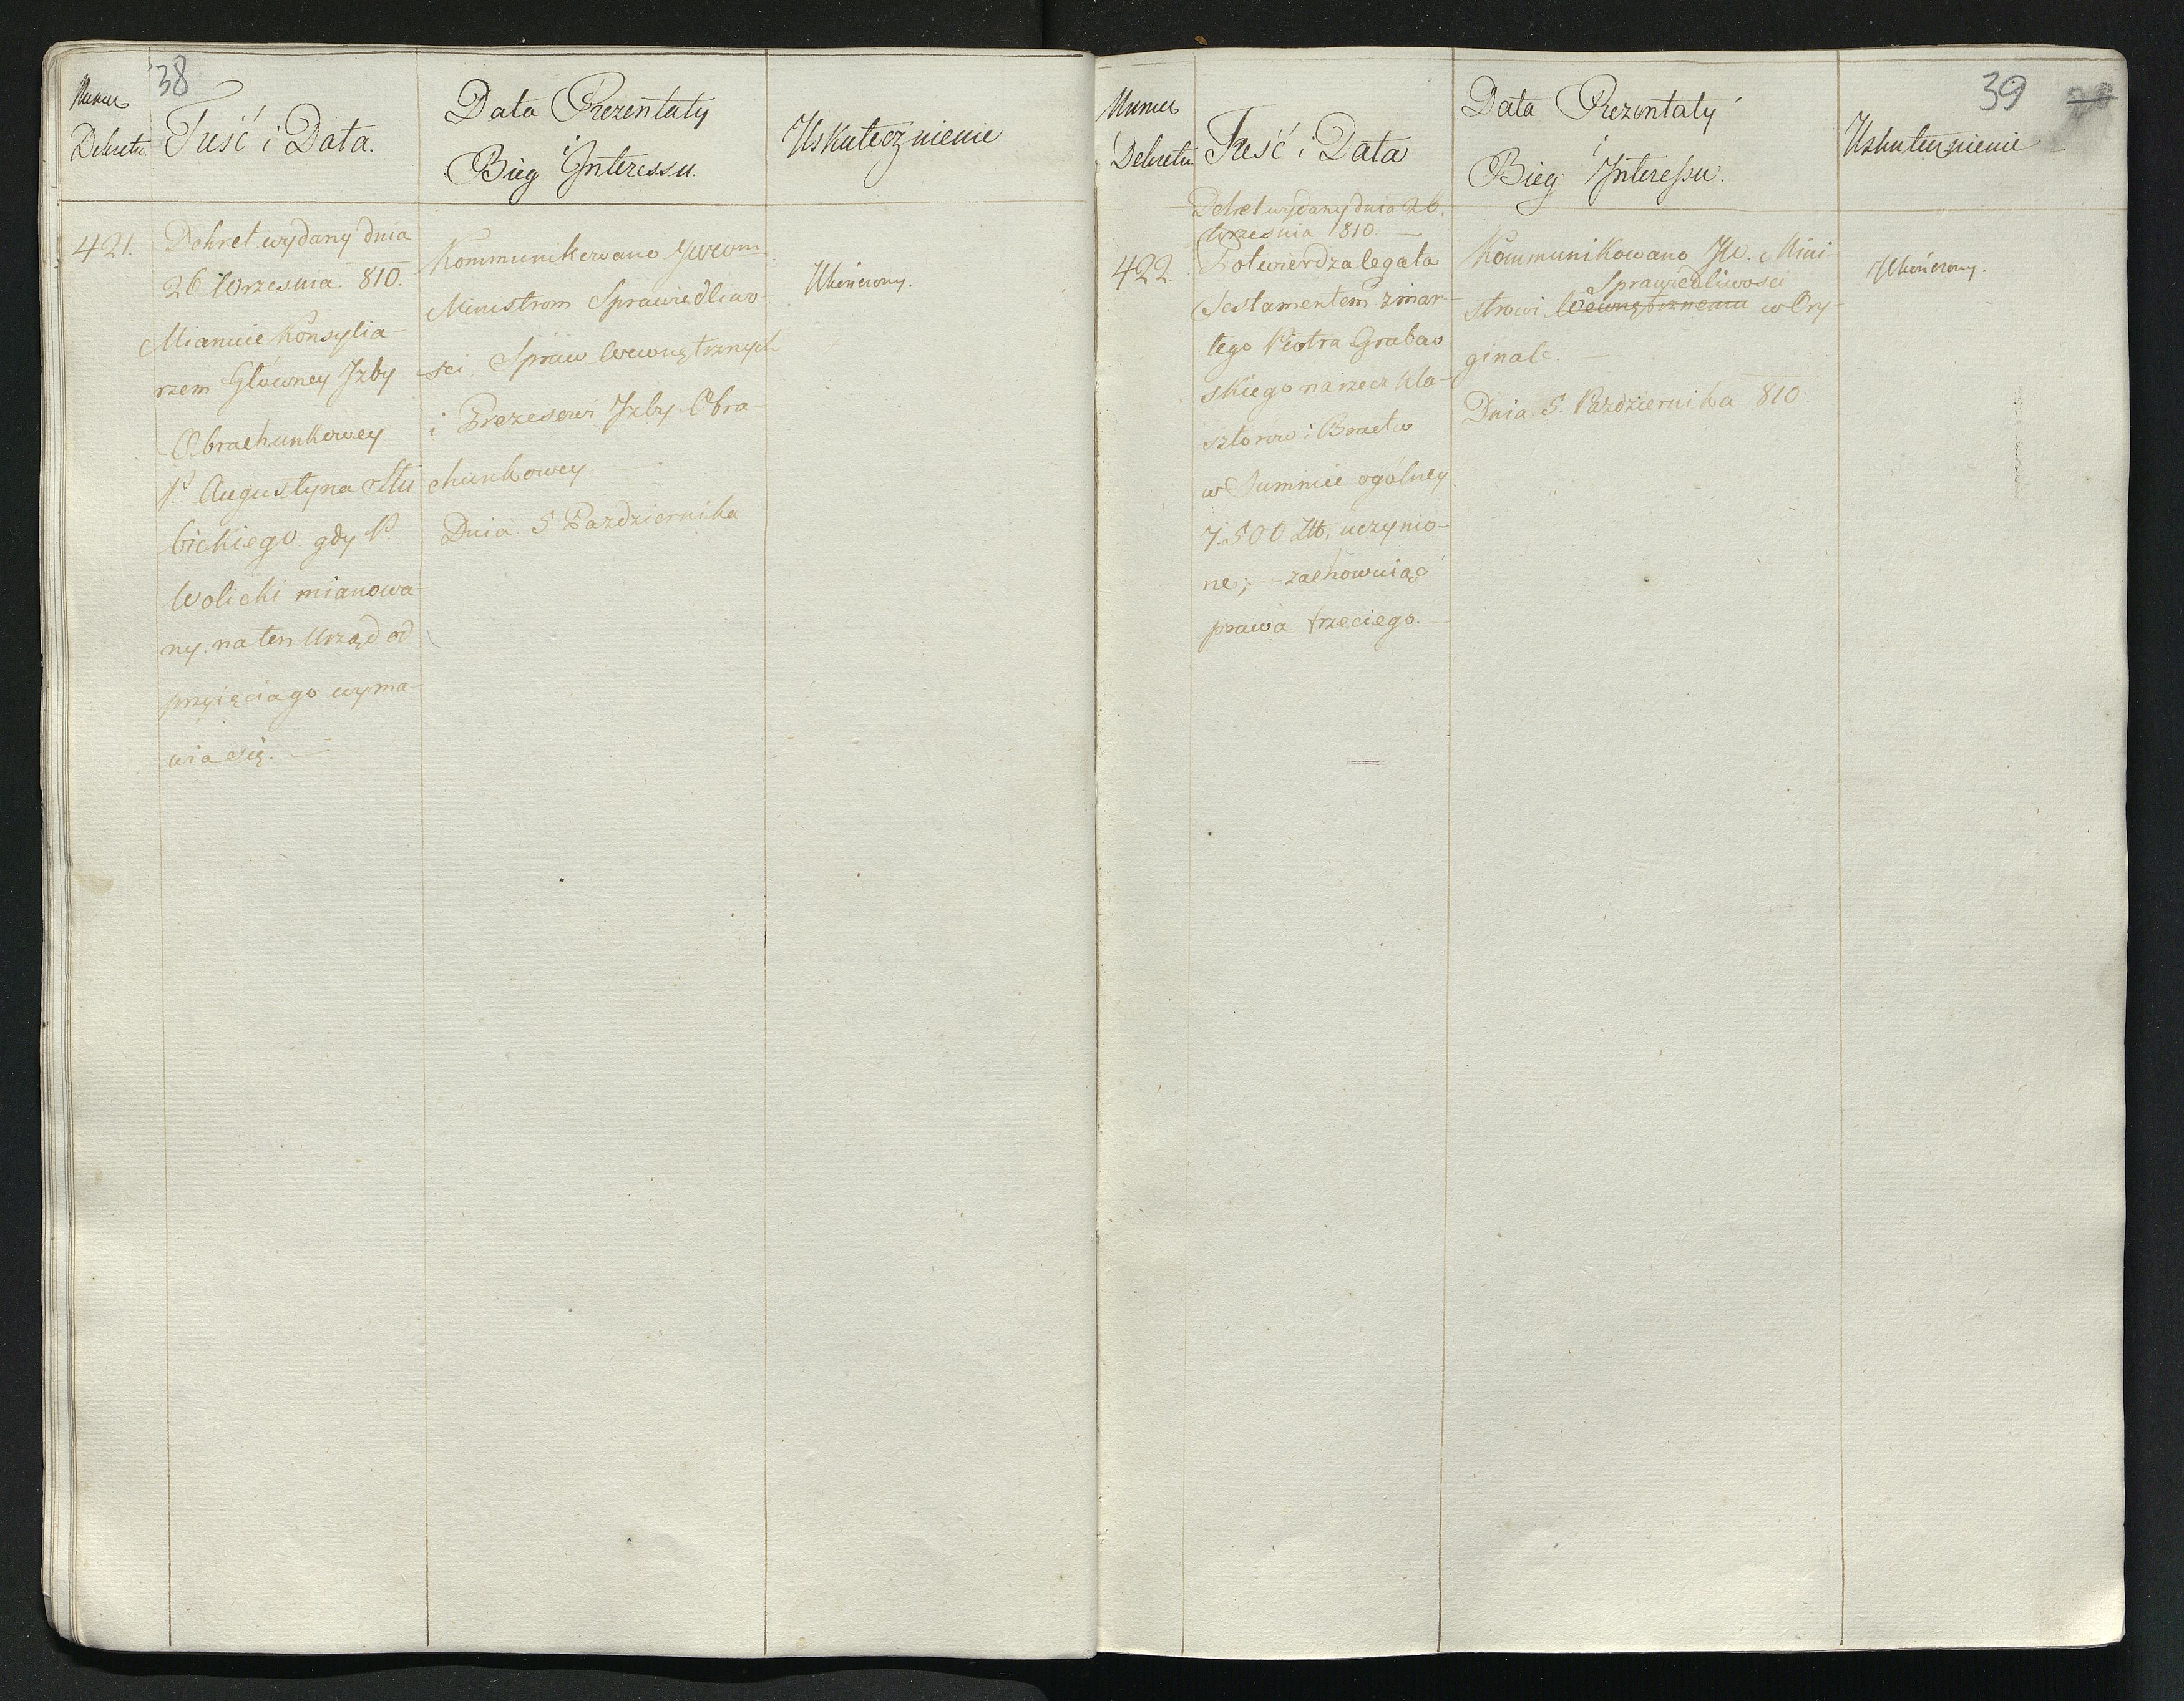 38
Numer
Dekretu
Treść i Data.
Data Prezentaty
i
Bieg Interessu.
Uskutecznienie
421.
Dekret wydany dnia
26 Września. 810.
Mianuie Konsylia-
rzem Główney Izby
Obrachunkowey
P. Augustyna Słu
bickiego gdy P.
Wolicki mianowa-
ny na ten Urząd od
przyięcia go wyma-
wia się. —
Kommunikowano JWWom
Ministrom Sprawiedliwo-
sci Spraw Wewnętrznych
i Prezesowi Izby Obra-
chunkowey.
Dnia 5 Pazdziernika
Ukończony.
39
Numer
Dekretu
Treść i Data
Data Prezentaty
i
Bieg Interessu.
Uskutecznienie
Dekret wydany dnia 26.
Września 1810. —
422.
Potwierdza legata
Testamentem zmar-
łego Piotra Grabow
skiego na rzecz Kla-
sztorow i Bractw
w Summie ogólney
7.500 Zł. uczynio-
ne; — zachowuiąć
prawa trzeciego. —
Kommunikowano JW. Mini-
Sprawiedliwosci
strowi Wewnętrznemu w Ory-
ginale. —
Dnia 5. Pazdziernika 810
Ukończony.